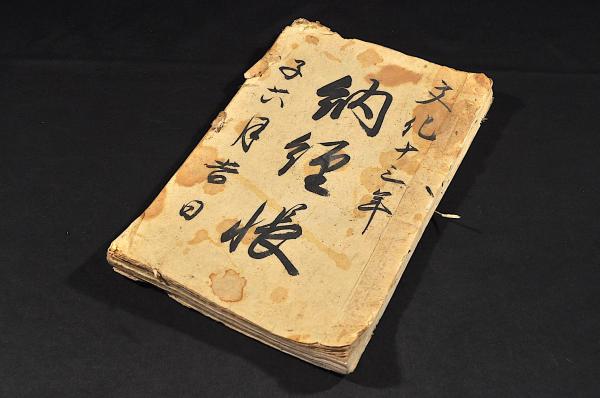 文化十三年
納経帳
子六月吉日